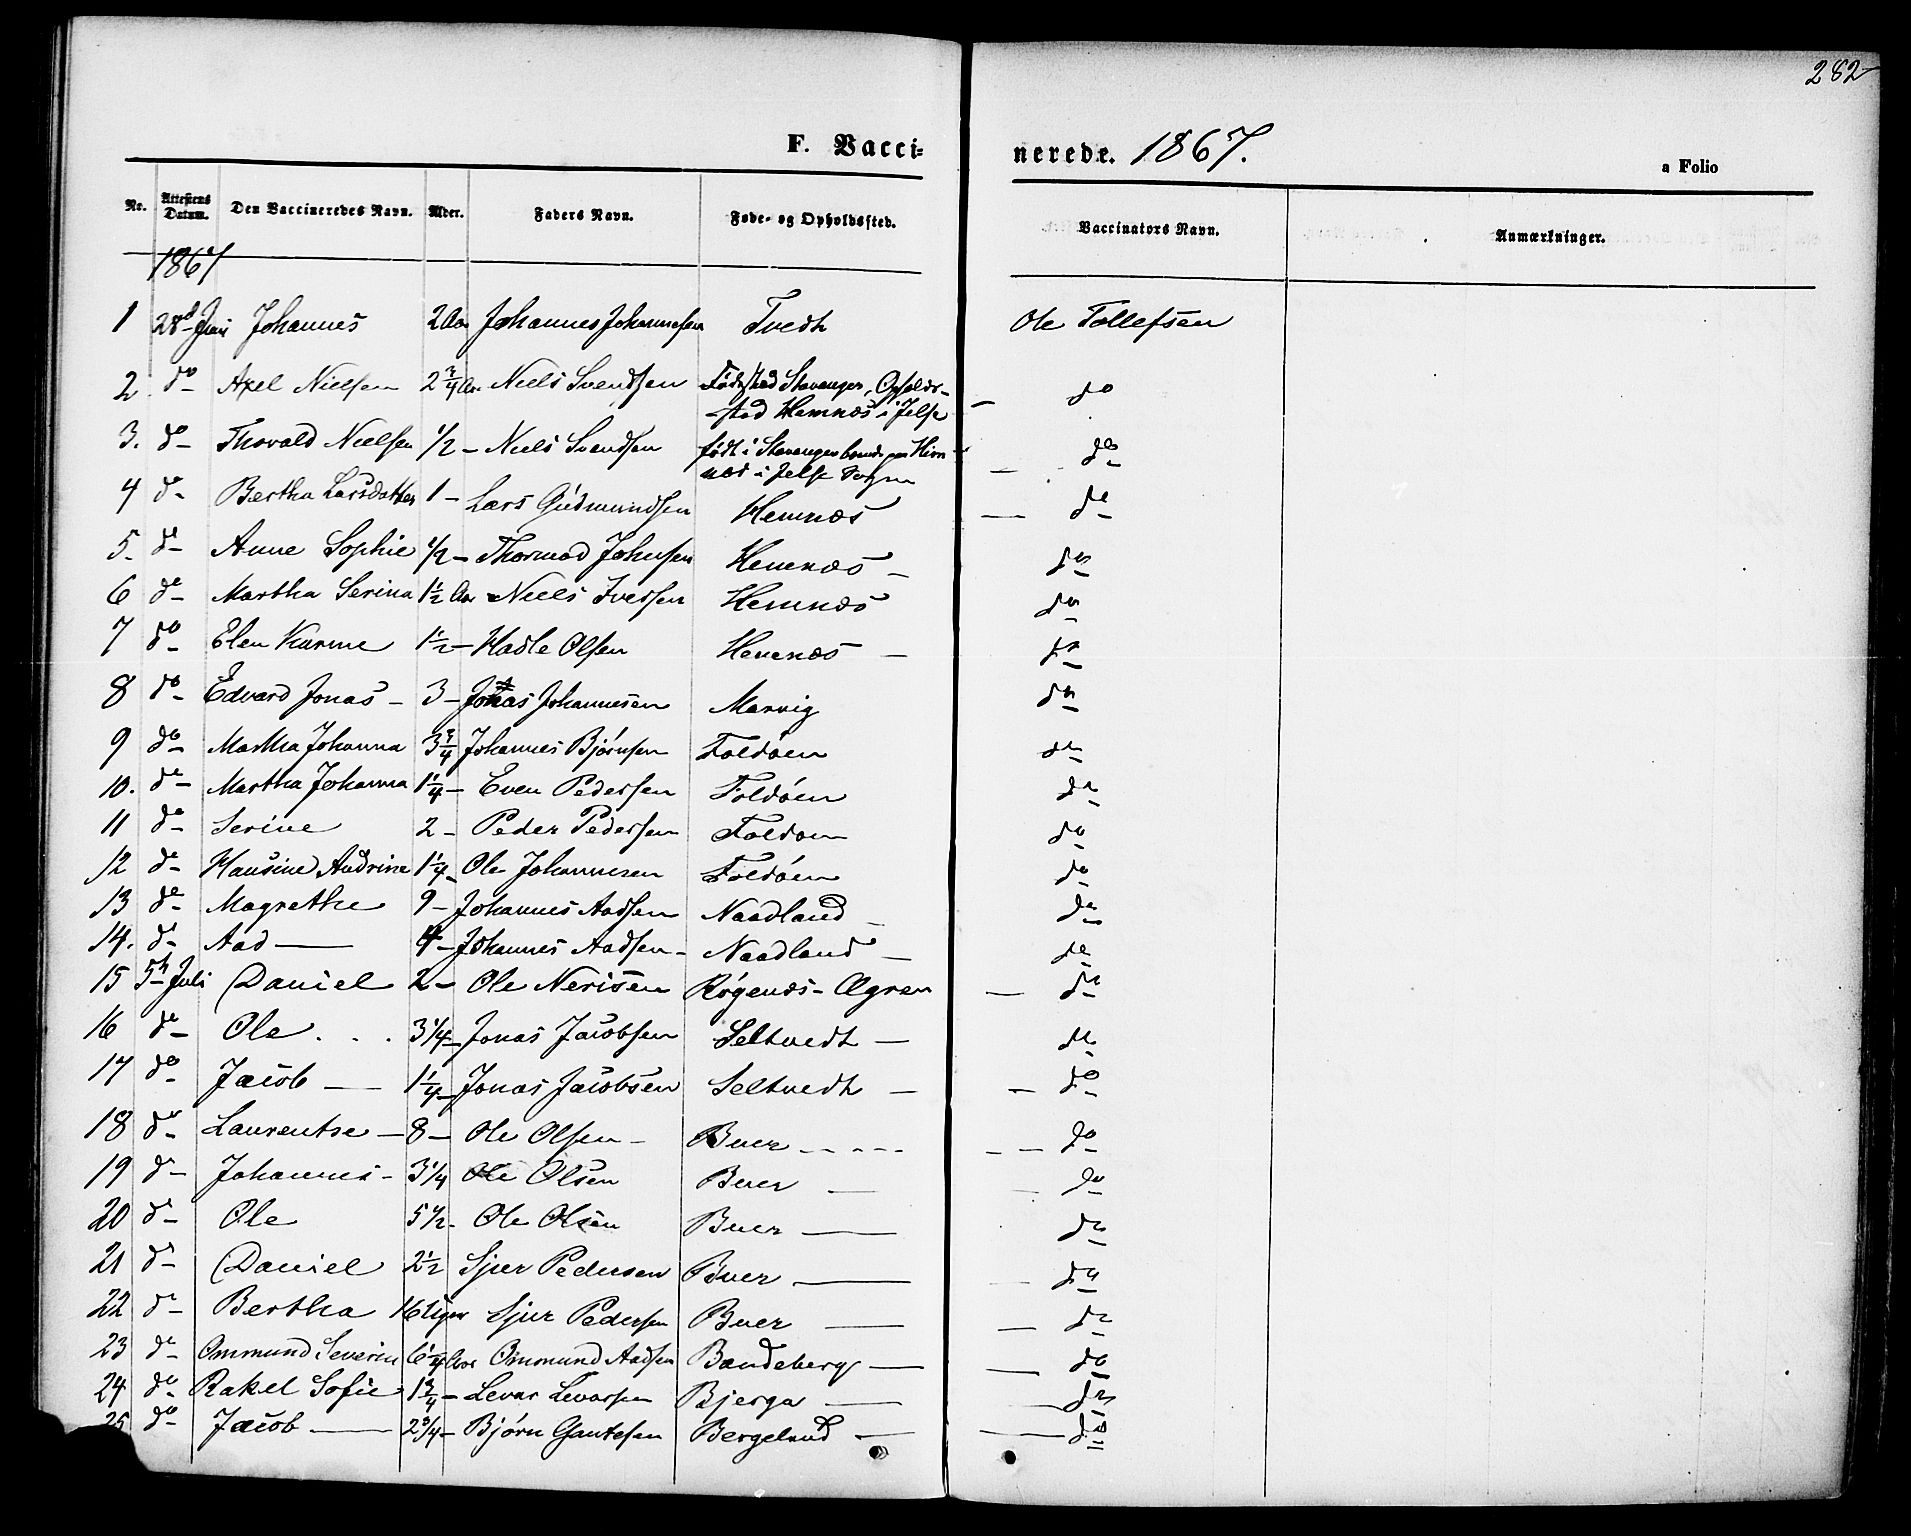 282
F. Vaccinerede. 1867.
a Folio
Nr. Attestens Datum. Den Vaccineredes Navn. Alder. Faders Navn. Føde- og Opholdssted. Vaccinators Navn. Anmærkninger.
1867
1 28d Juni Johannes 2 Aar Johannes Johannesen Tvedt Ole Tollefsen
2. do Axel Nielsen 2 3/4 Aar Niels Svendsen Fødested Stavanger, Opholds-
-sted Hemnæs i Jelse do
3. do Thorvald Nielsen 1/2 - Niels Svendsen født i Stavanger
i Jelse Sogn do
4 do Bertha Larsdatter 1 - Lars Gudmundsen Hemnæs do
5. do Anne Sophie 1/2 - Thormod Johnsen Hemnæs - do
6 do Martha Serina 1 1/2 Aar Niels Iversen Hemnæs do
7 do Elen Karine 1 1/2 - Hadle Olsen Hemnæs - do
8 do Edvard Jonas - 3 - Jonas Johannesen Marvig do
9 do Martha Johanna 3 3/4 Johannes Bjørnsen Foldøen do
10. do Martha Johanna 1 1/4 - Even Pedersen Foldøen do
11 do Serine 2 - Peder Pedersen Foldøen do
12 do Hansine Andrine 1 1/4 - Ole Johannesen Foldøen do
13 do Magrethe 9 - Johannes Aadsen Naadland - do
14. do Aad - 4 - Johannes Aadsen - Naadland - do
15 5th Juli Daniel 2 - Ole Nerisen Røgenæs - Øgren - do
16 do Ole . . . 3 1/4 - Jonas Jacobsen Seltvedt - do
17 do Jacob - 1 1/4 - Jonas Jacobsen Seltvedt - do
18 do Laurentse - 8 - Ole Olsen - Buer - - - - do
19 do Johannes - 3 1/4 Ole Olsen Buer - do
20 do Ole 5 1/2 - Ole Olsen Buer - do
21 do Daniel 2 1/2 Sjur Pedersen Buer - do
22 do Bertha 16 Uger Sjur Pedersen Buer - do
23 do Ommund Severin 6 1/4 Aar Ommund Aadsen Bandeberg - do
24 do Rakel Sofie 1 3/4 - Levar Levarsen Bjerga - do
25 do Jacob - 2 3/4 - Bjørn Gautesen Bergeland - do